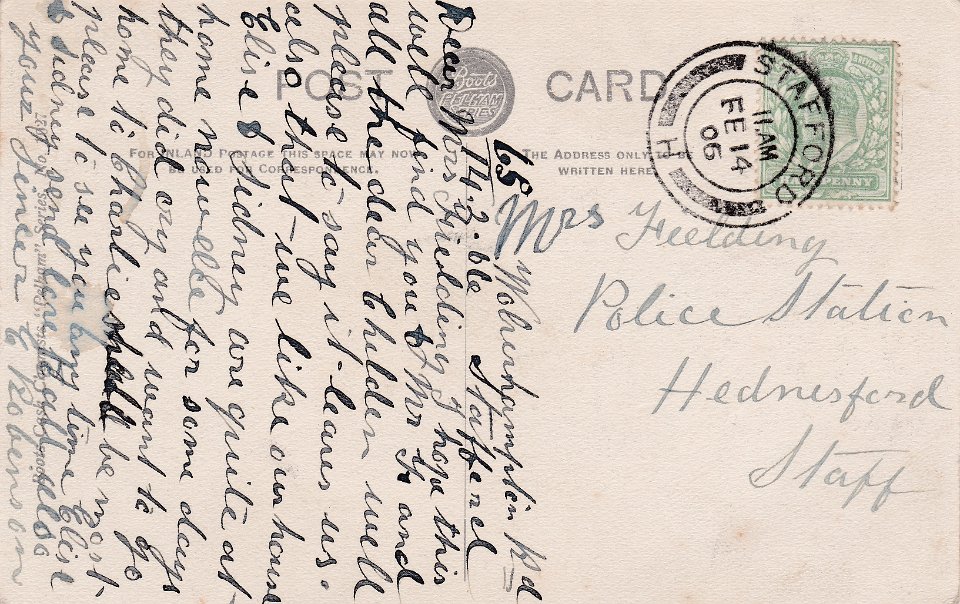 POST CARD
Boots
PELHAM
SERIES
FOR INLAND POSTAGE THIS SPACE MAY NOW
BE USED FOR CORRESPONDENCE.
THE ADDRESS ONLY TO BE
WRITTEN HERE.
STAFFORD
11 AM
FE 14
06
H
PENNY
Mrs Fielding
Police Station
Hednesford
Staff
65 Wolverhampton Rd
14.2.06 Stafford
Dear Mrs Fielding I hope this
will find you & Mr F and
all the dear childern well
please to say it leaves us.
also that we like our house
Elise & Sidney are quite at
home now all for some days
they did cry and want to go
home to Charlie shall be most
please to see you any time Elise
& Sidney send love to all
yours Sincer E Robinson